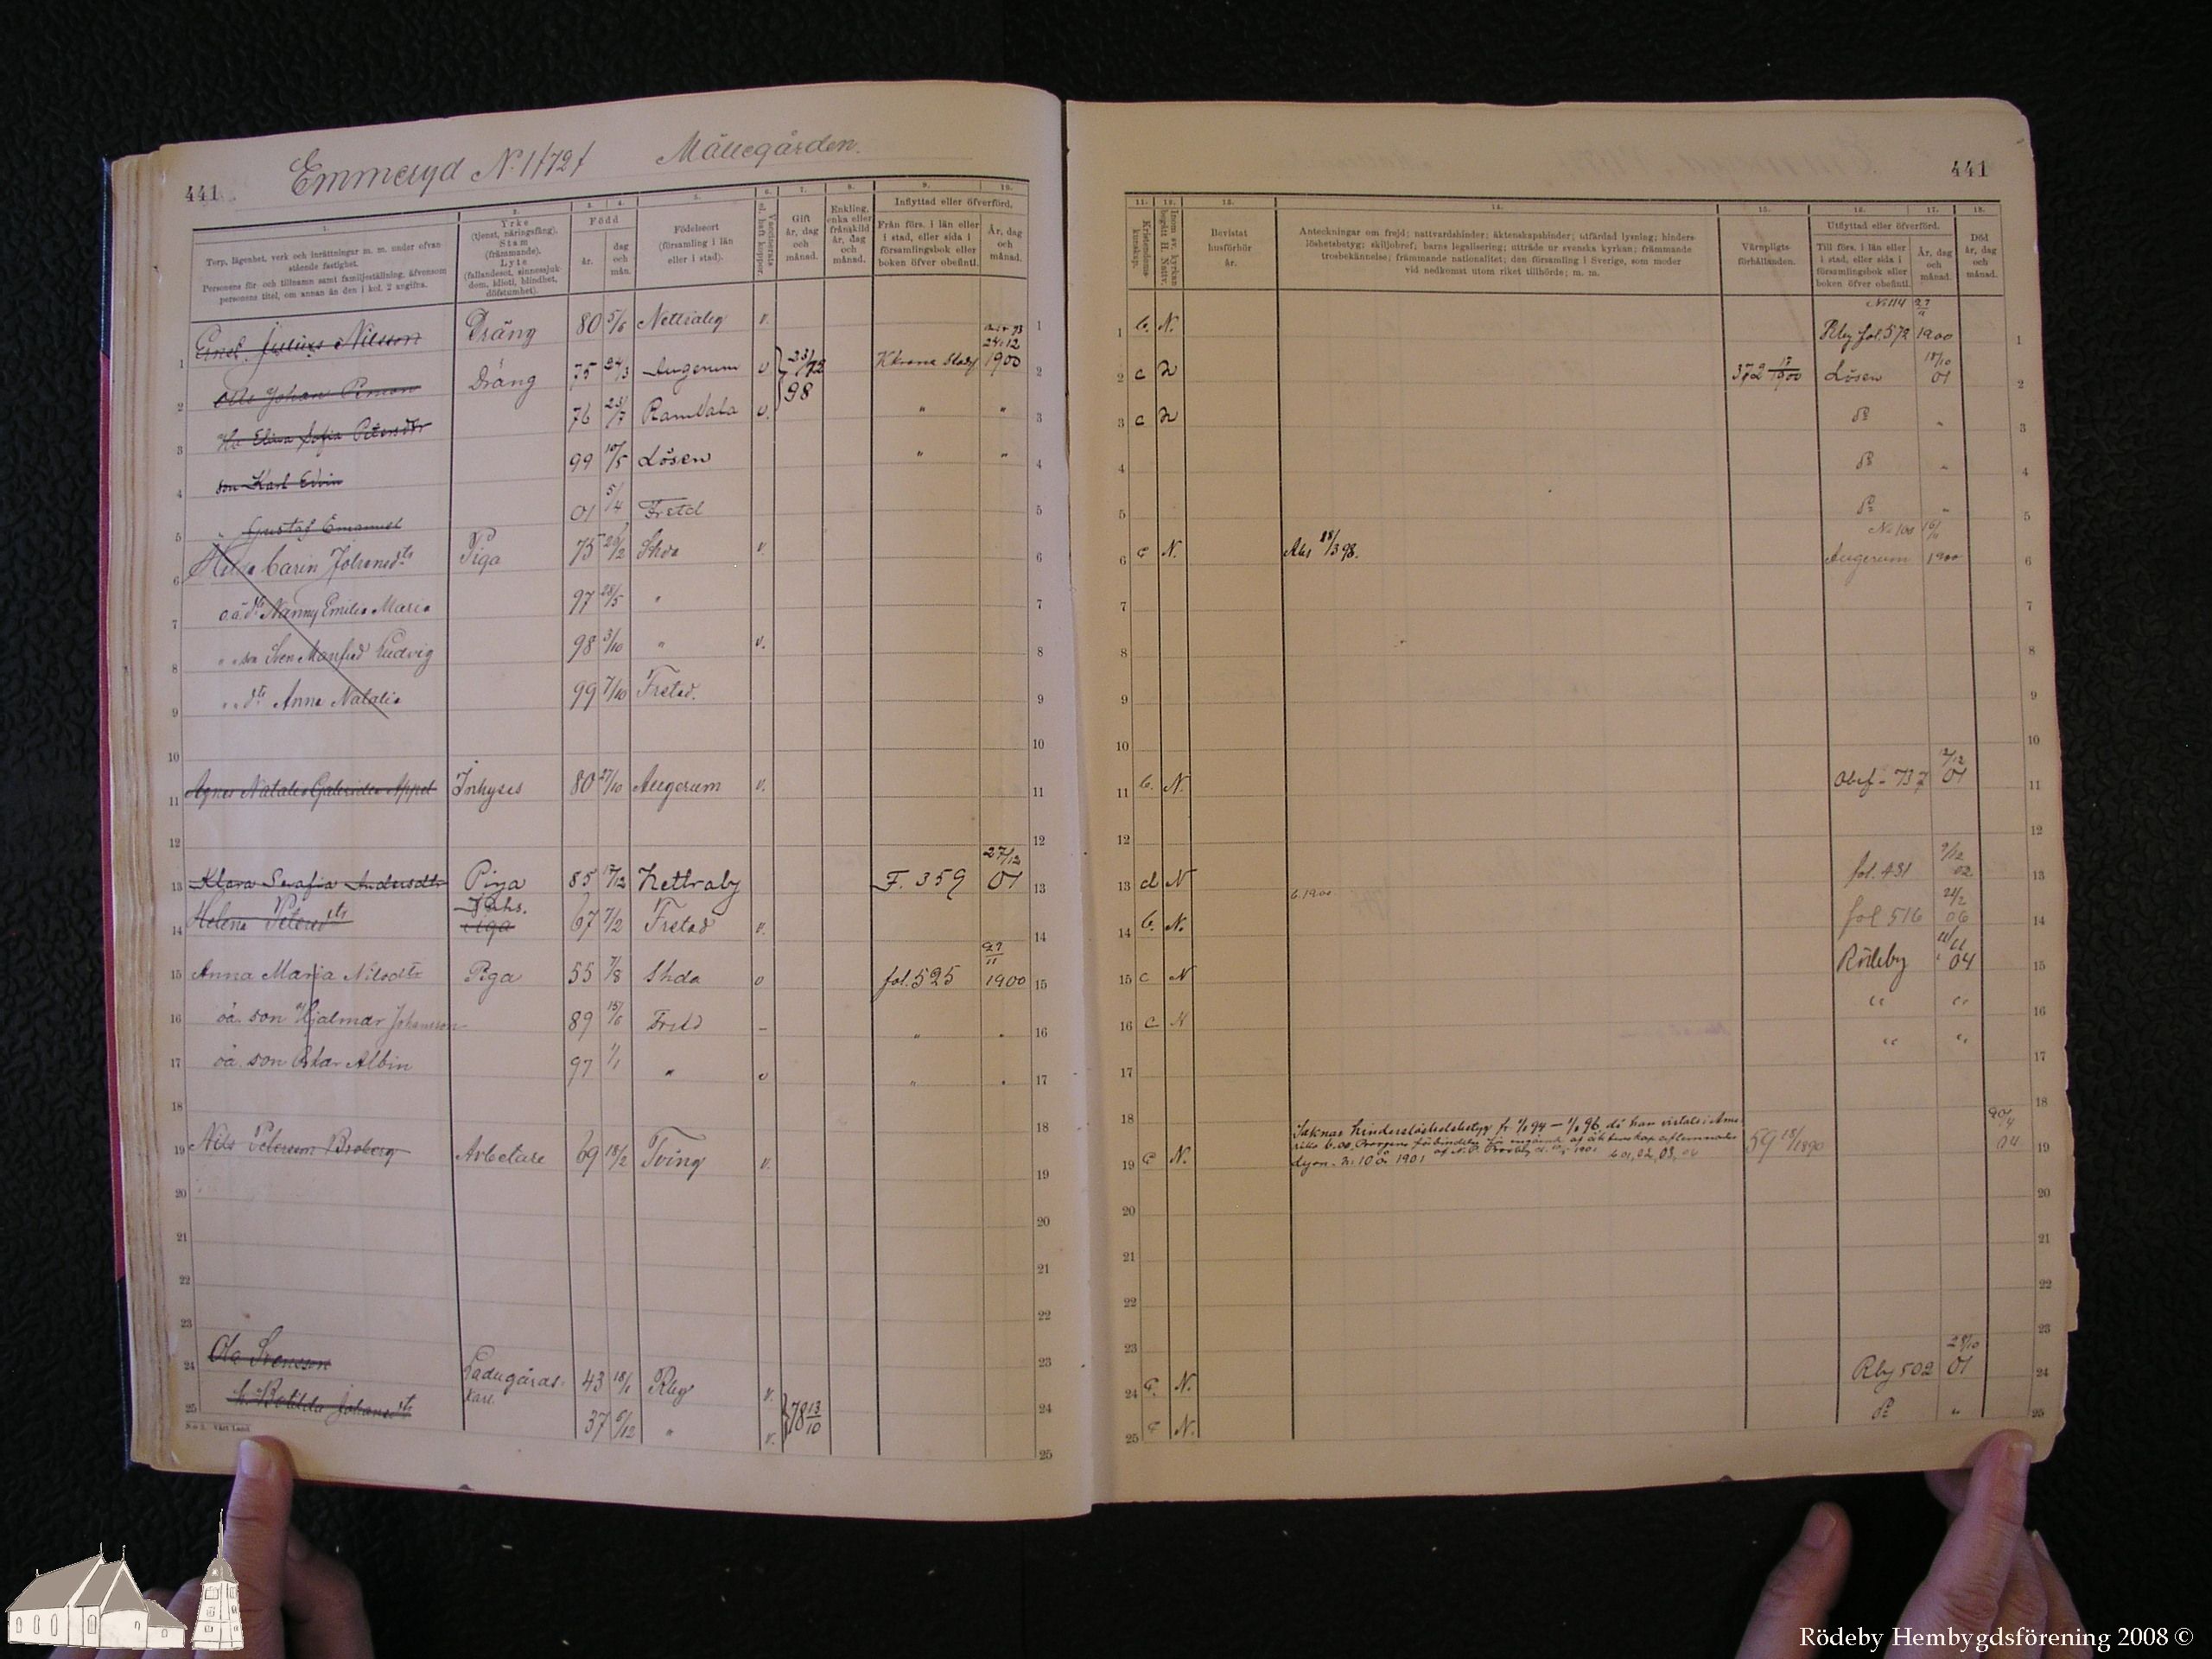 441
Emmeryd N. 1/72 f
Mällegården.
1.
2.
3.
4.
5.
6.
7.
8.
9.
10.
Torp, lägenhet, verk och inrättningar m. m. under ofvan
stående fastighet.
Personens för- och tillnamn samt familjeställning, äfvensom
personens titel, om annan än den i kol. 2 angifna.
Yrke
(tjenst, näringsfång).
Stam
(främmande).
Lyte
(fallandesot, sinnessjuk-
dom, idioti, blindhet,
döfstumhet).
Född
år.
dag
och
mån.
Födelseort
(församling i län
eller i stad).
Vaccinerats
el. haft koppor.
Gift
år, dag
och
månad.
Enkling,
enka eller
frånskild
år, dag
och
månad.
Inflyttad eller öfverförd.
Från förs. i län eller
i stad, eller sida i
församlingsbok eller
boken öfver obefintl.
År, dag
och
månad.
1 Ernst Julius Nilsson Dräng 80 5/6 Nettraby v. 1
2 Otto Johan Dräng 75 24/3 Augerum v 23/12 98 Kkrona Stadsf 24/12 1900 2
3 Hu Elina Sofia Petersdtr 76 23/7 Ramdala v. " " 3
4 son Karl Edvin 99 10/5 Lösen " " 4
5 " Gustaf Emanuel 01 5/4 Fretd 5
6 Hilda Carin Johansdtr Piga 75 20/2 Shda v. 6
7 o.ä. dtr Nanny Emilia Maria 97 28/5 " 7
8 " " son Sven Manfred Ludvig 98 3/10 " v. 8
9 " " dtr Anna Natalia 99 7/10 Fretad. 9
10 10
11 Agnes Natalia Appel Inhyses 80 27/10 Augerum v. 11
12 12
13 Klara Serafia Andersdtr Piga 85 17/12 Nettraby F. 359 27/12 01 13
14 Helena Petersdtr Piga 67 7/2 Fretad v. 14
15 Anna Maria Nilsdtr Piga 55 7/8 Shda v fol. 525 27/11 1900 15
16 oä. son Hjalmar Johansson 89 15/6 Fretd – " " 16
17 oä. son Oskar Albin 97 1/1 " v " " 17
18 18
19 Nils Peterson Broberg Arbetare 69 18/2 Tving v. 19
20 20
21 21
22 22
23 23
24 Ola Svensson Ladugårds- karl. 43 18/1 Rby v. 24
25 h. Botilda Johansdtr 37 6/12 " v. 78 13/10 25
441
11.
12.
13.
14.
15.
16.
17.
18.
Kristendoms-
kunskap.
Inom sv. kyrkan
begått H. Nattv.
Bevistat
husförhör
år.
Anteckningar om frejd; nattvardshinder; äktenskapshinder; utfärdad lysning; hinders-
löshetsbetyg; skiljobref; barns legalisering; utträde ur svenska kyrkan; främmande
trosbekännelse; främmande nationalitet; den församling i Sverige, som moder
vid nedkomst utom riket tillhörde; m. m.
Värnpligts-
förhållanden.
Utflyttad eller öfverförd.
Till förs. i län eller
i stad, eller sida i
församlingsbok eller
boken öfver obefintl.
År, dag
och
månad.
Död
år, dag
och
månad.
1 b. N. No 114 27/11 Rby fol. 572 1900 1
2 c N 372 17/1900 Lösen 18/10 01 2
3 c N Do " 3
4 Do " 4
5 Do " 5
6 c N. Abs 28/3 98. No 100 16/11 Augerum 1900 6
7 7
8 8
9 9
10 10
11 b. N. Obef. 737 2/12 01 11
12 12
13 d N b. 1900 fol. 431 9/12 02 13
14 b. N. fol 516 24/2 06 14
15 c N Rödeby 11/11 04 15
16 c N " " 16
17 " " 17
18 18
19 c N. Saknas hinderslöshetsbetyg fr. 94 – 96, då han vistats i Ame
rika 59 18/1890 20/4 04 19
20 20
21 21
22 22
23 23
24 c. N. Rby 502 28/10 01 24
25 c N. Do " 25
Rödeby Hembygdsförening 2008 ©